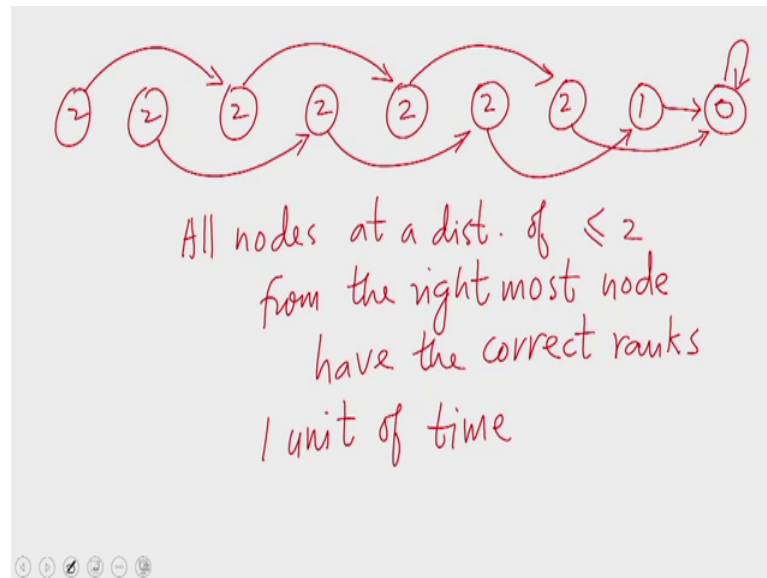 2 2 2 2 2 2 2 1 0
All nodes at a dist. of ≤ 2
from the right most node
have the correct ranks
1 unit of time